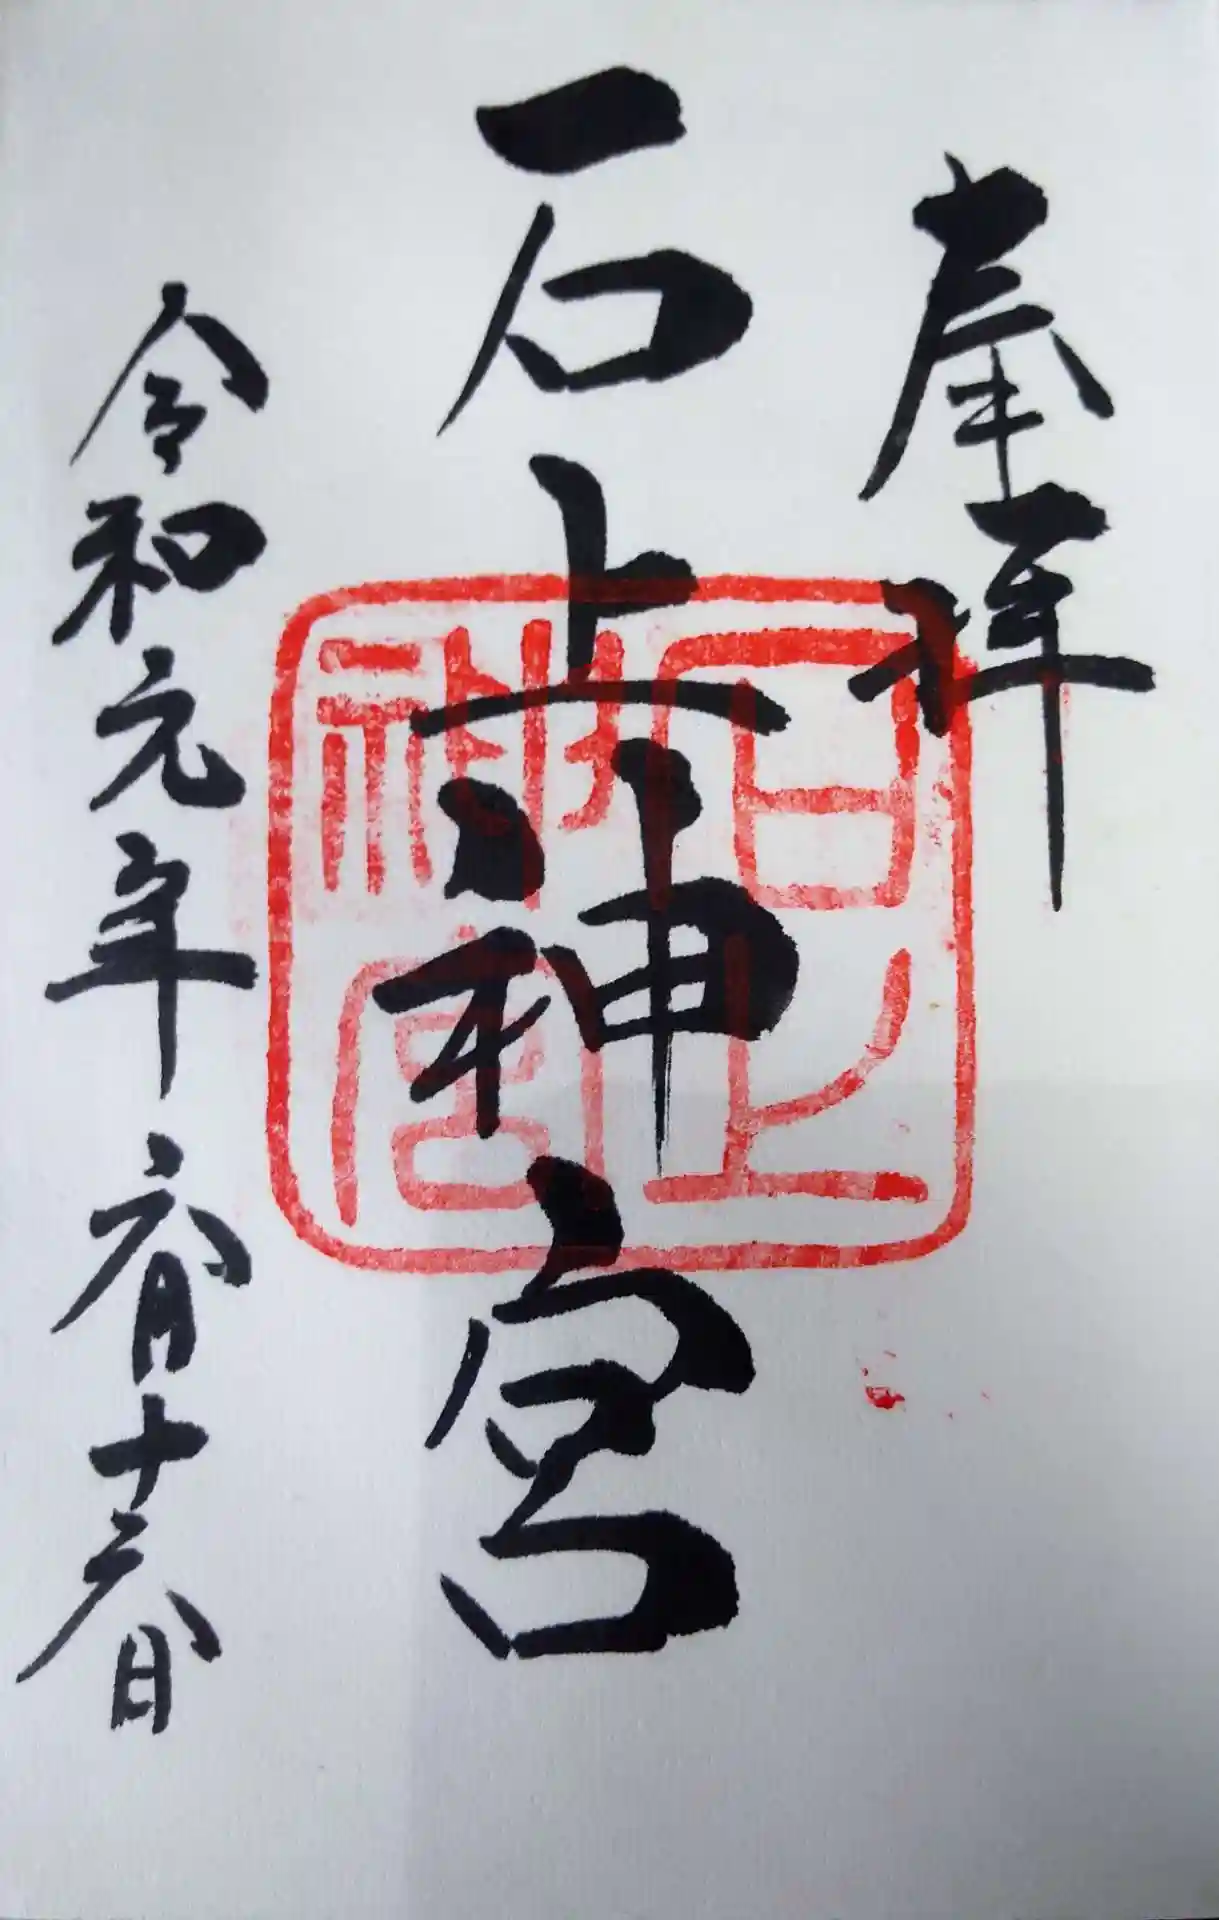 奉拝
石上神宮
石上
神宮
令和元年六月十六日